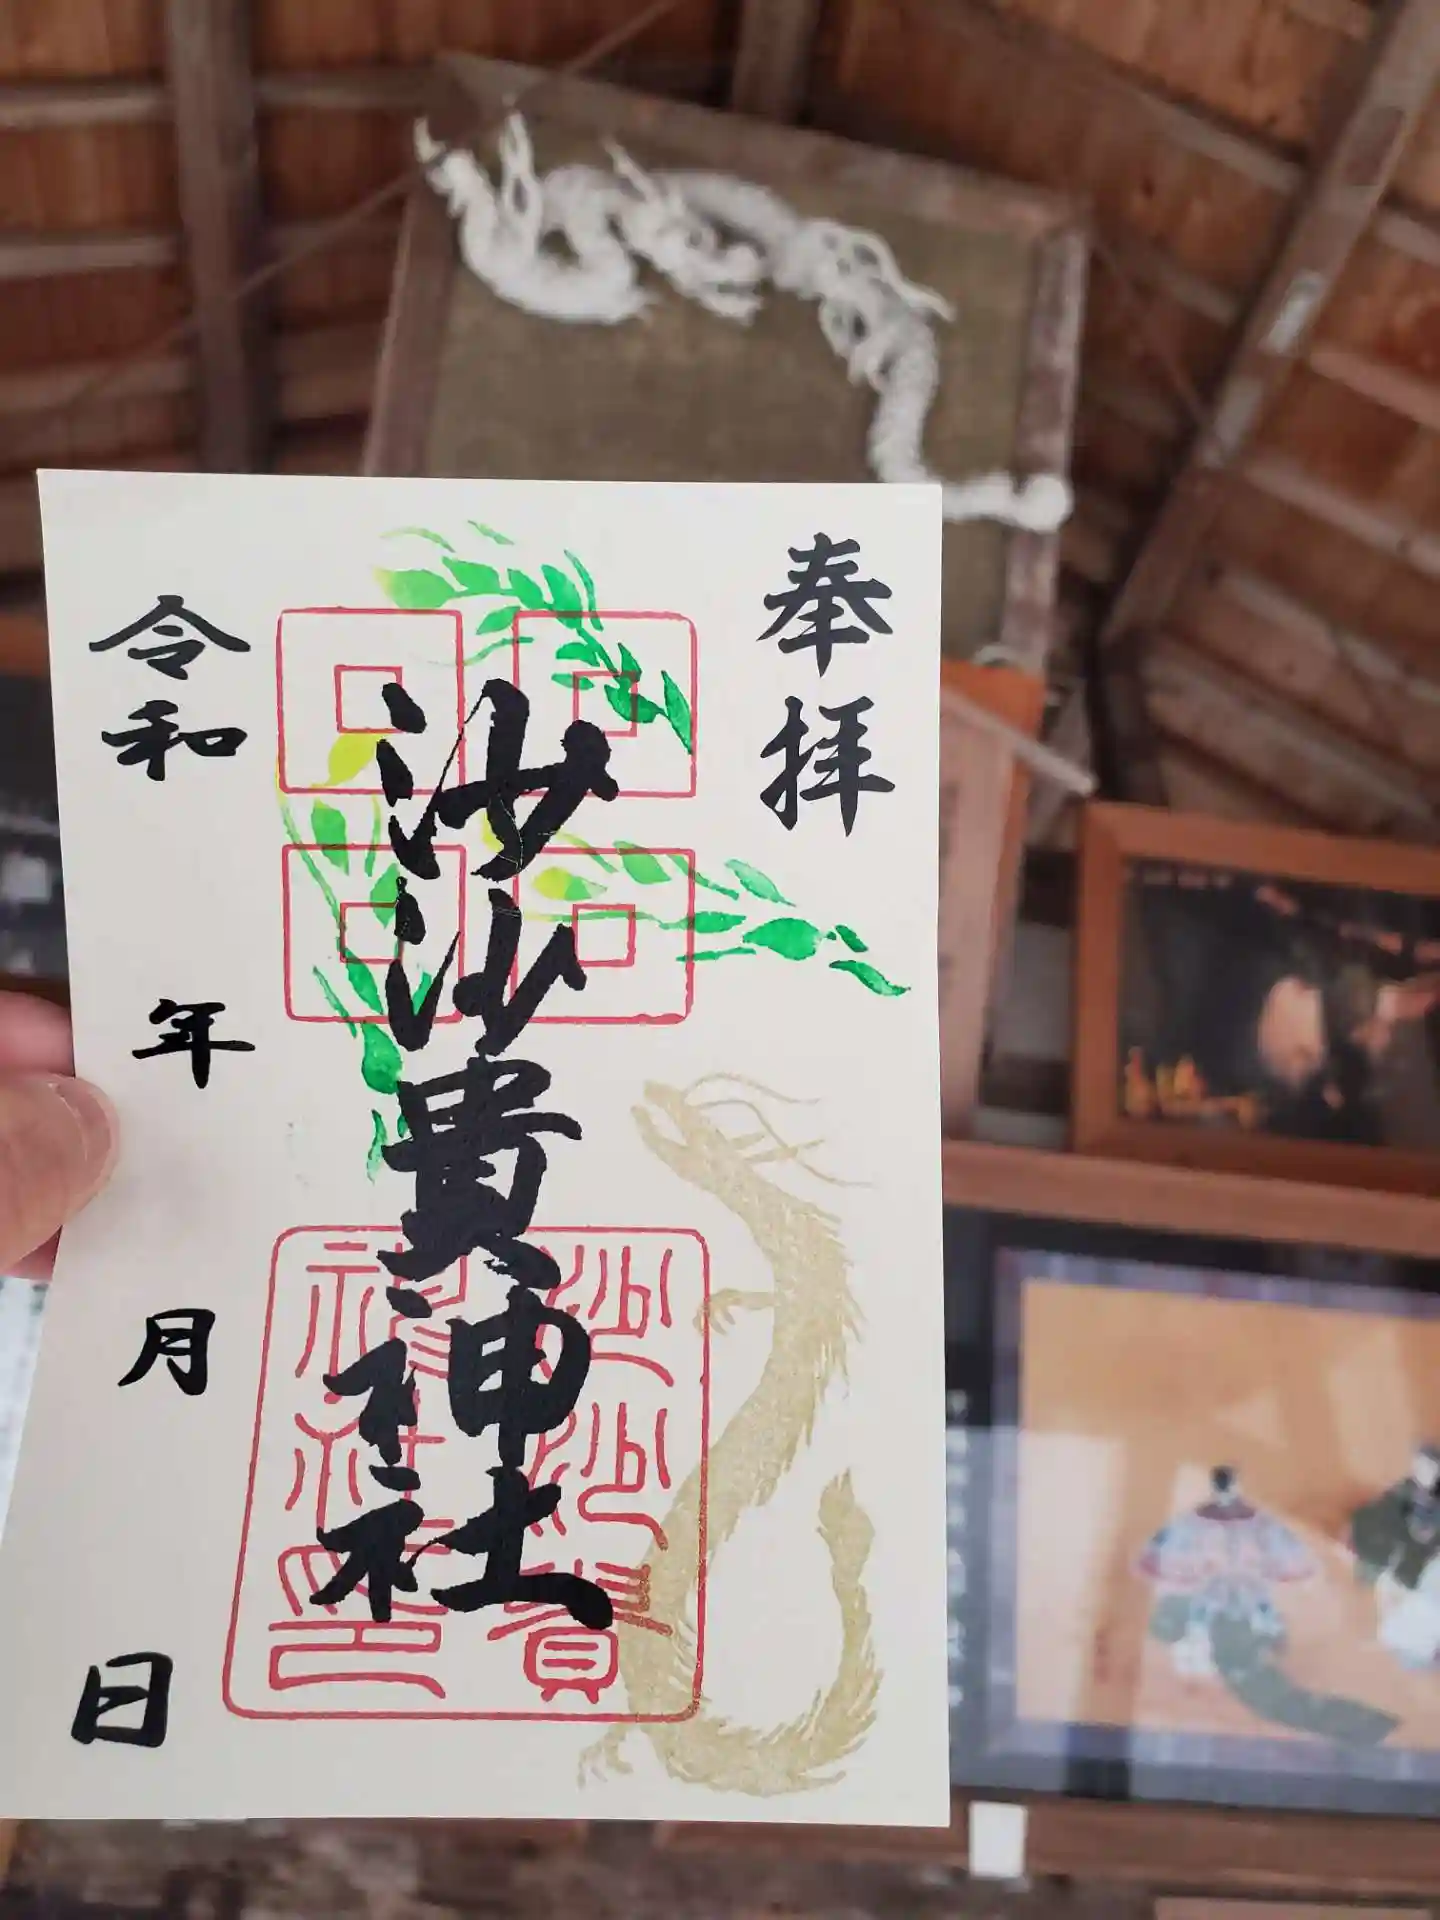 奉拝
沙沙貴神社
沙沙貴
神社印
令和 年 月 日